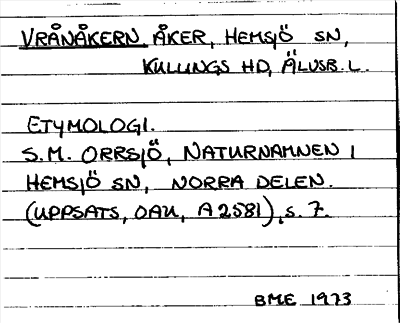 VRÅNÅKERN ÅKER, HEMSJÖ SN,
KULLINGS HD, ÄLVSB. L.
ETYMOLOGI.
S.M. ORRSJÖ, NATURNAMNEN I
HEMSJÖ SN, NORRA DELEN.
(UPPSATS, OAU, A 2581), S. 7.
BME 1973